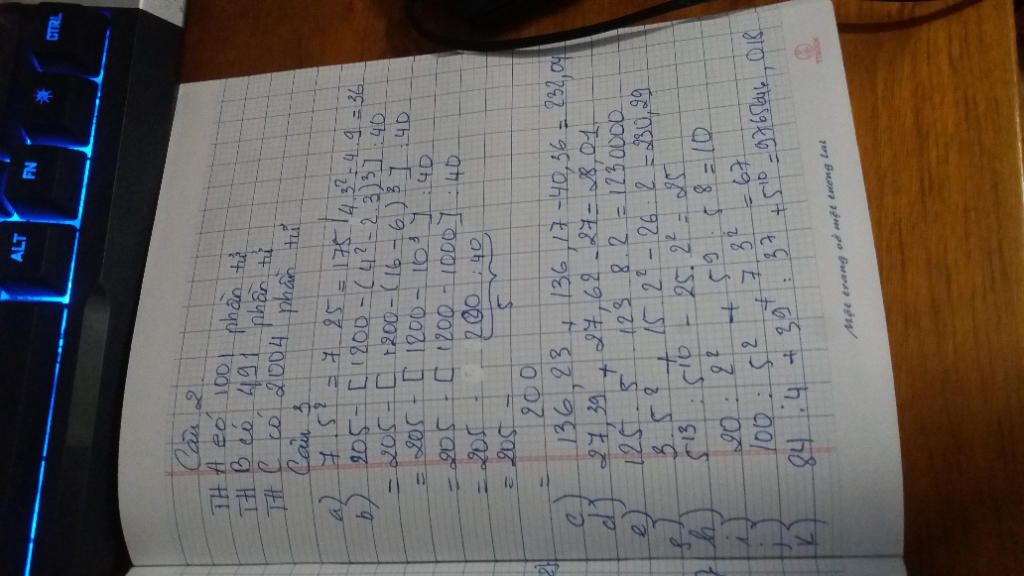 Câu 2
TH A có 1001 phần tử
TH B có 491 phần tử
TH C có 2004 phần tử
Câu 3
a) 7 . 5² = 7 . 25 = 175 / 4.3² = 4.9 = 36
b) 205 - [1200 - (4² - 2.3)³] : 40
= 205 - [1200 - (16 - 6)³] : 40
= 205 - [1200 - 10³] : 40
= 205 - [1200 - 1000] : 40
= 205 - 200 : 40
= 205 - 5
= 200
c) 136 . 23 + 136 . 17 - 40.36 = 232,04
d) 27 . 39 + 27 . 62 - 27 = 28,01
e) 125 . 5 . 123 . 8 . 2 = 1230000
g) 3 . 5² + 15 . 2² - 26 : 2 = 230,29
h) 5¹³ : 5¹⁰ - 25 . 2² = 25
i) 20 : 2² + 5⁹ : 5⁸ = 10
j) 100 : 5² + 7 . 3² = 67
k) 84 : 4 + 3⁹ : 3⁷ + 5¹⁰
Một trang vở một tương lai
CTRL
FN
ALT